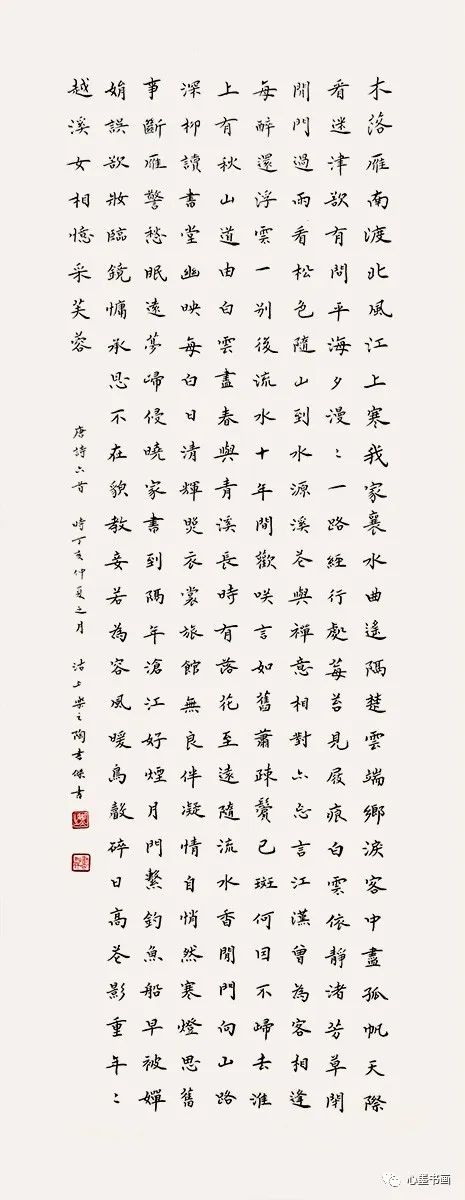 木落雁南渡北風江上寒我家襄水曲遙隔楚雲端鄉淚客中盡孤帆天際
看迷津欲有問平海夕漫〻一路經行處莓苔見屐痕白雲依靜渚芳草閉
閒門過雨看松色隨山到水源溪花與禪意相對亦忘言江漢曾為客相逢
每醉還浮雲一別後流水十年間歡咲言如舊蕭疎鬢已斑何因不歸去淮
上有秋山道由白雲盡春與青溪長時有落花至遠隨流水香閒門向山路
深柳讀書堂幽映每白日清輝照衣裳旅館無良伴凝情自悄然寒燈思舊
事斷雁警愁眠遠夢歸侵曉家書到隔年滄江好煙月門繫釣魚船早被嬋
娟誤欲妝臨鏡慵承恩不在貌教妾若為容風暖鳥聲碎日高花影重年〻
越溪女相憶采芙蓉
唐詩六首 時丁亥仲夏之月 沽上樂之陶書傑書
心墨书画